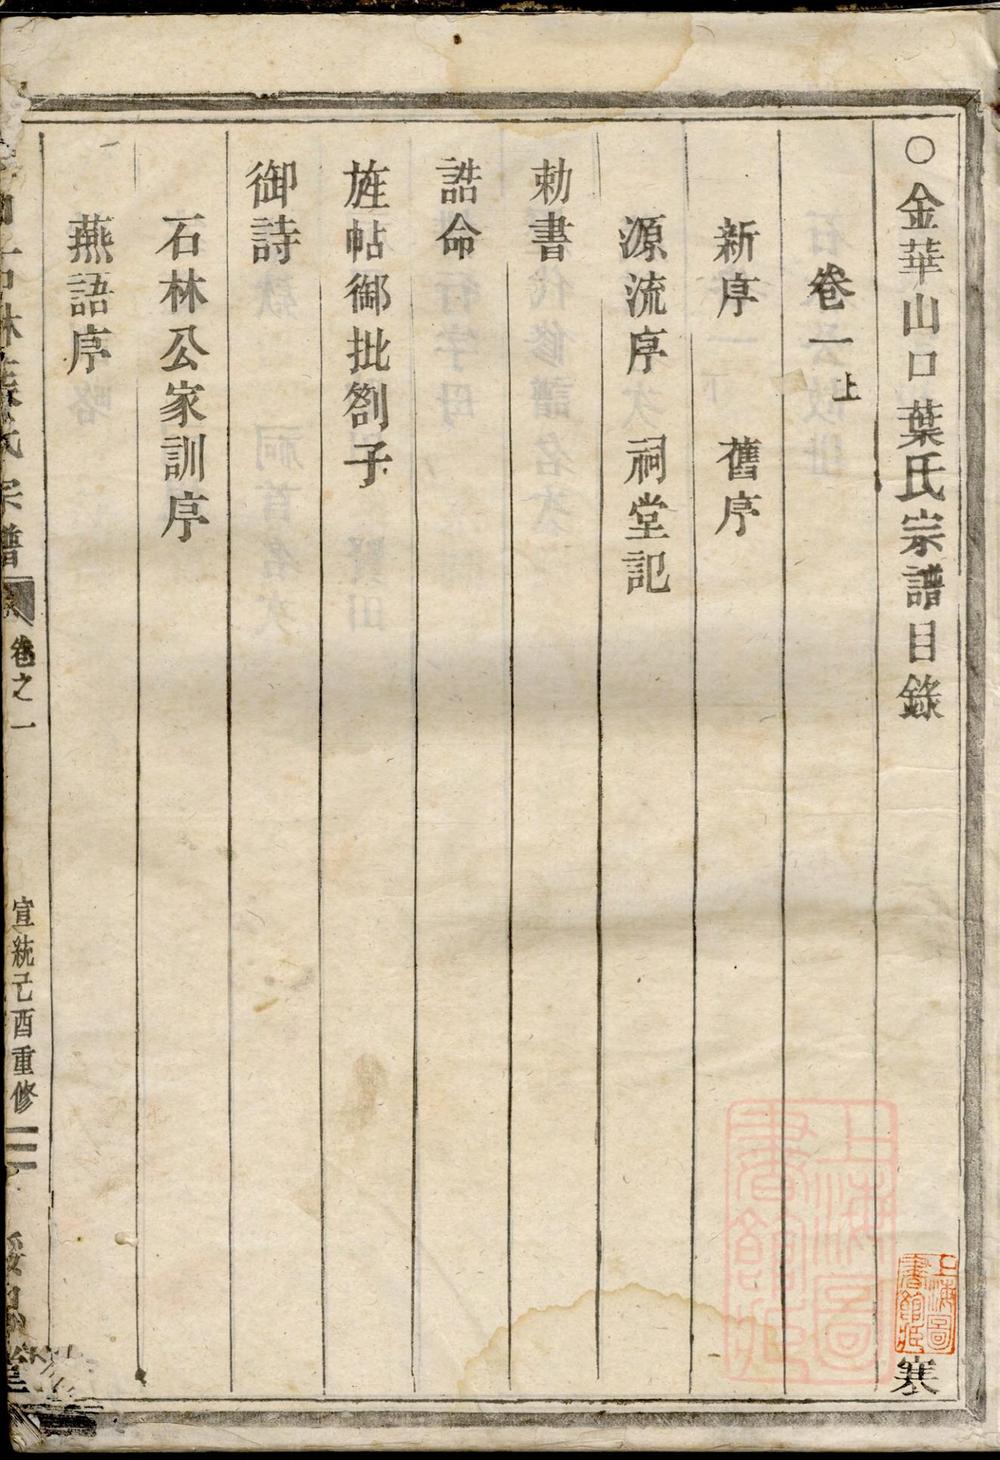 ○金華山口葉氏宗譜目錄
寒
卷一上
新序 舊序
源流序 祠堂記
勅書
誥命
旌帖御批劄子
御詩
石林公家訓序
燕語序
林葉氏宗譜
卷之一
宣統己酉重修
堂
上海圖書館藏